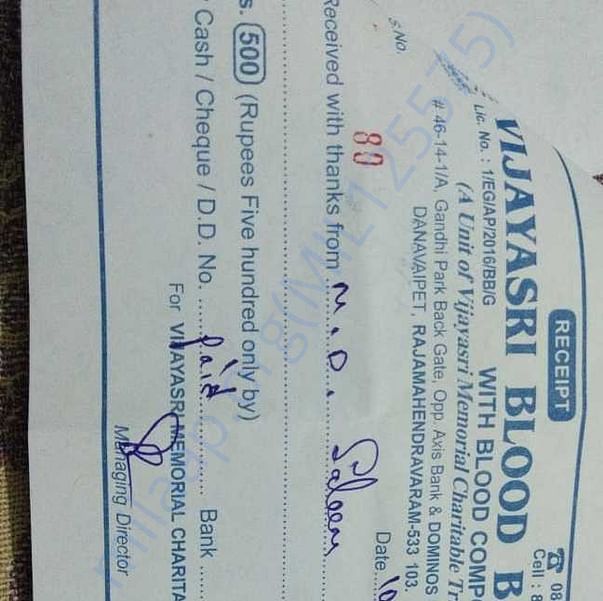 RECEIPT
☎ 08
Cell : 8
VIJAYASRI BLOOD B
Lic. No. : 1/EG/AP/2016/BB/G WITH BLOOD COMP
(A Unit of Vijayasri Memorial Charitable Tr
# 46-14-1/A, Gandhi Park Back Gate, Opp. Axis Bank & DOMINOS
DANAVAIPET, RAJAMAHENDRAVARAM-533 103.
S.No. 80 Date 10
Received with thanks from M.D. Saleem
s. 500 (Rupees Five hundred only by)
Cash / Cheque / D.D. No. Paid Bank
For VIJAYASRI MEMORIAL CHARITA
Managing Director